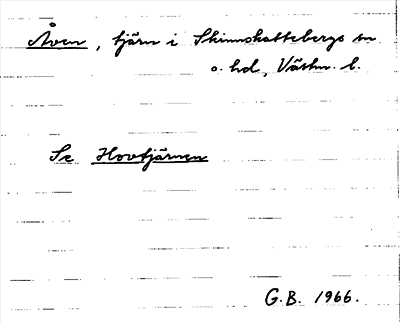 Åven, tjärn i Skinnskattebergs sn
o. hd, Västm. l.
Se Hovtjärnen
G.B. 1966.